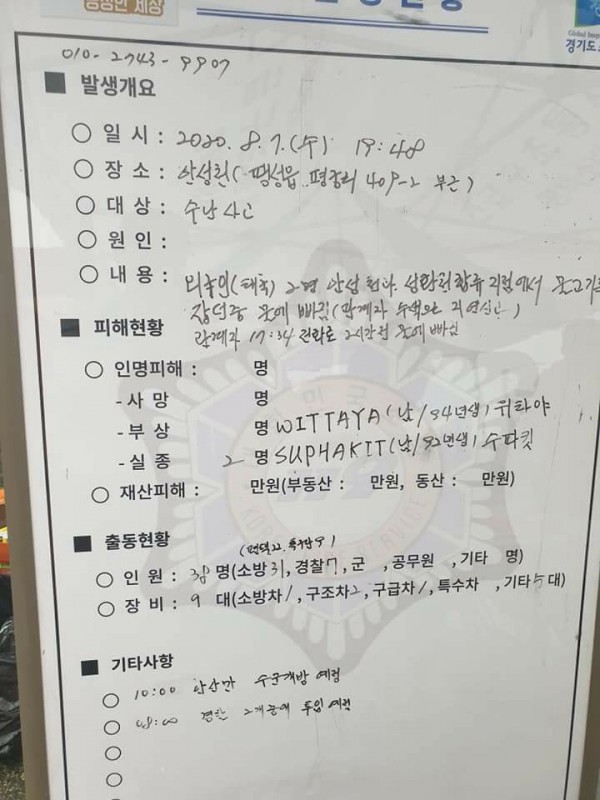 청정한 세상
경기도
010-2743-9907
■ 발생개요
○ 일 시 : 2020. 8. 7. (수) 17:48
○ 장 소 : 안성천(팽성읍 평궁리 409-2 부근)
○ 대 상 : 수난사고
○ 원 인 :
○ 내 용 : 외국인(태국) 2명 안성천과 합류지점에서 물고기를
잡던중 물에 빠짐(관계자 수색으로 지연신고)
관계자 17:34 전화로 2시간전 물에 빠짐
■ 피해현황
○ 인명피해 : 명
- 사 망 명
- 부 상 명 WITTAYA(남/94년생) 위타야
- 실 종 2 명 SUPHAKIT(남/92년생) 수파킷
○ 재산피해 : 만원(부동산 : 만원, 동산 : 만원)
■ 출동현황
○ 인 원 : 38 명(소방 31, 경찰 7, 군 , 공무원 , 기타 명)
○ 장 비 : 9 대(소방차 1, 구조차 2, 구급차 1, 특수차 , 기타 5 대)
■ 기타사항
○ 10:00 아산만 수문개방 예정
○ 08:00 경찰 2개중대 투입 예정
○
○
○